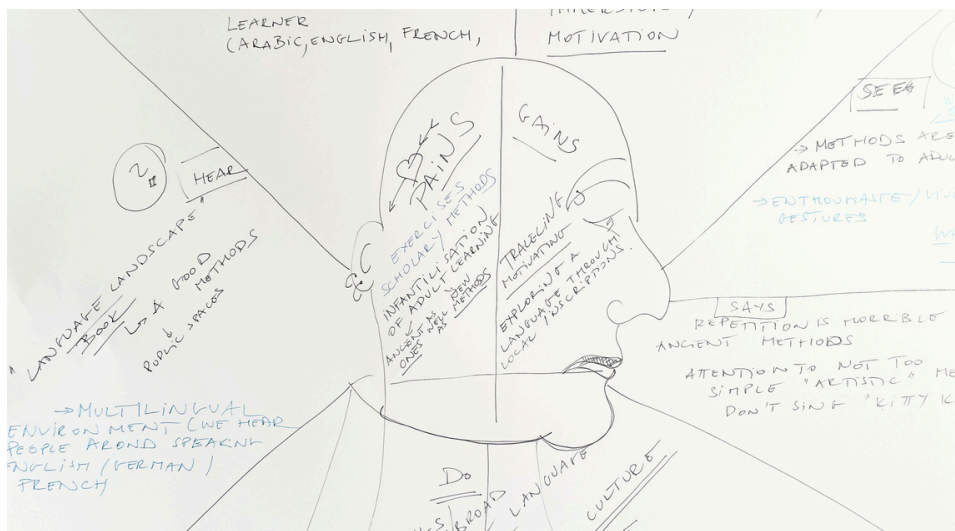 LEARNER
(ARABIC, ENGLISH, FRENCH,
MOTIVATION
2
HEAR
"LANGUAGE LANDSCAPE"
BOOK
↳ A GOOD
METHODS
PUBLIC SPACES
→ MULTILINGUAL
ENVIRONMENT (WE HEAR
PEOPLE AROND SPEAKNG
ENGLISH / GERMAN /
FRENCH
PAINS
EXERCISES
SCHOLARY METHODS
INFANTILISATION
OF ADULT LEARNING
ANCIENT AS NEW
ONES WELL METHODS
AS
GAINS
TRAVELING
MOTIVATING
EXPLORING A
LANGUAGE THROUGHT
LOCAL INSCRIPTIONS.
SEES
→ METHODS ARE
ADAPTED TO ADU
→ ENTHOUIASTE /
GESTURES
SAYS
REPETITION IS HORRIBLE
ANCIENT METHODS
ATTENTION TO NOT TOO
SIMPLE "ARTISTIC" ME
DON'T SING "KITTY K
DO
BROAD
LANGUAGE
CULTURE